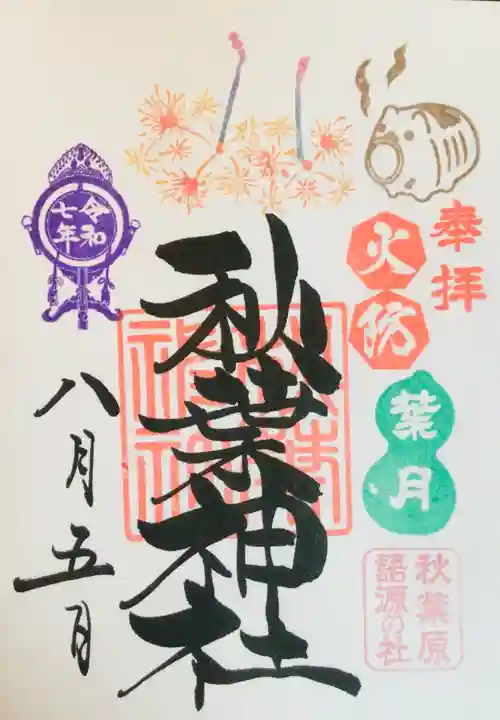 奉拝
火伝
葉月
秋葉原
語源の社
秋葉神社
令和
七年
八月五日